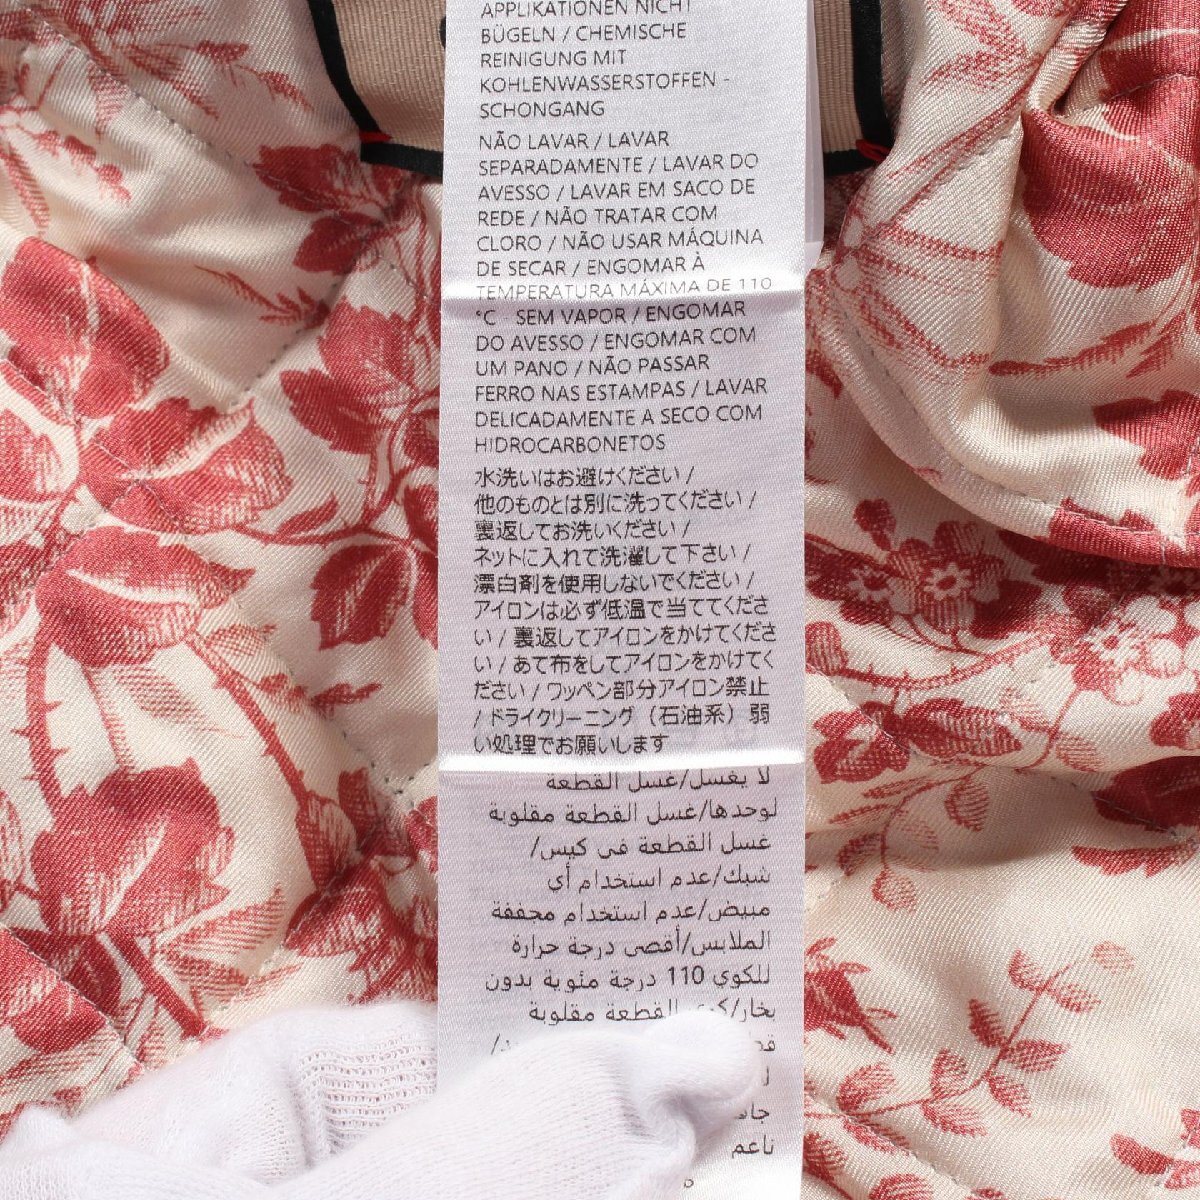 APPLIKATIONEN NICHT
BÜGELN / CHEMISCHE
REINIGUNG MIT
KOHLENWASSERSTOFFEN -
SCHONGANG
NÃO LAVAR / LAVAR
SEPARADAMENTE / LAVAR DO
AVESSO / LAVAR EM SACO DE
REDE / NÃO TRATAR COM
CLORO / NÃO USAR MÁQUINA
DE SECAR / ENGOMAR À
TEMPERATURA MÁXIMA DE 110
°C - SEM VAPOR / ENGOMAR
DO AVESSO / ENGOMAR COM
UM PANO / NÃO PASSAR
FERRO NAS ESTAMPAS / LAVAR
DELICADAMENTE A SECO COM
HIDROCARBONETOS
水洗いはお避けください /
他のものとは別に洗ってください /
裏返してお洗いください /
ネットに入れて洗濯して下さい /
漂白剤を使用しないでください /
アイロンは必ず低温で当ててくださ
い / 裏返してアイロンをかけてくださ
い / あて布をしてアイロンをかけてく
ださい / ワッペン部分アイロン禁止
/ ドライクリーニング（石油系）弱
い処理でお願いします
لا يغسل/غسل القطعة
لوحدها/غسل القطعة مقلوبة
غسل القطعة في كيس/
شبك/عدم استخدام أي
مبيض/عدم استخدام مجففة
الملابس/أقصى درجة حرارة
للكوي 110 درجة مئوية بدون
بخار/كوي القطعة مقلوبة
ناعم